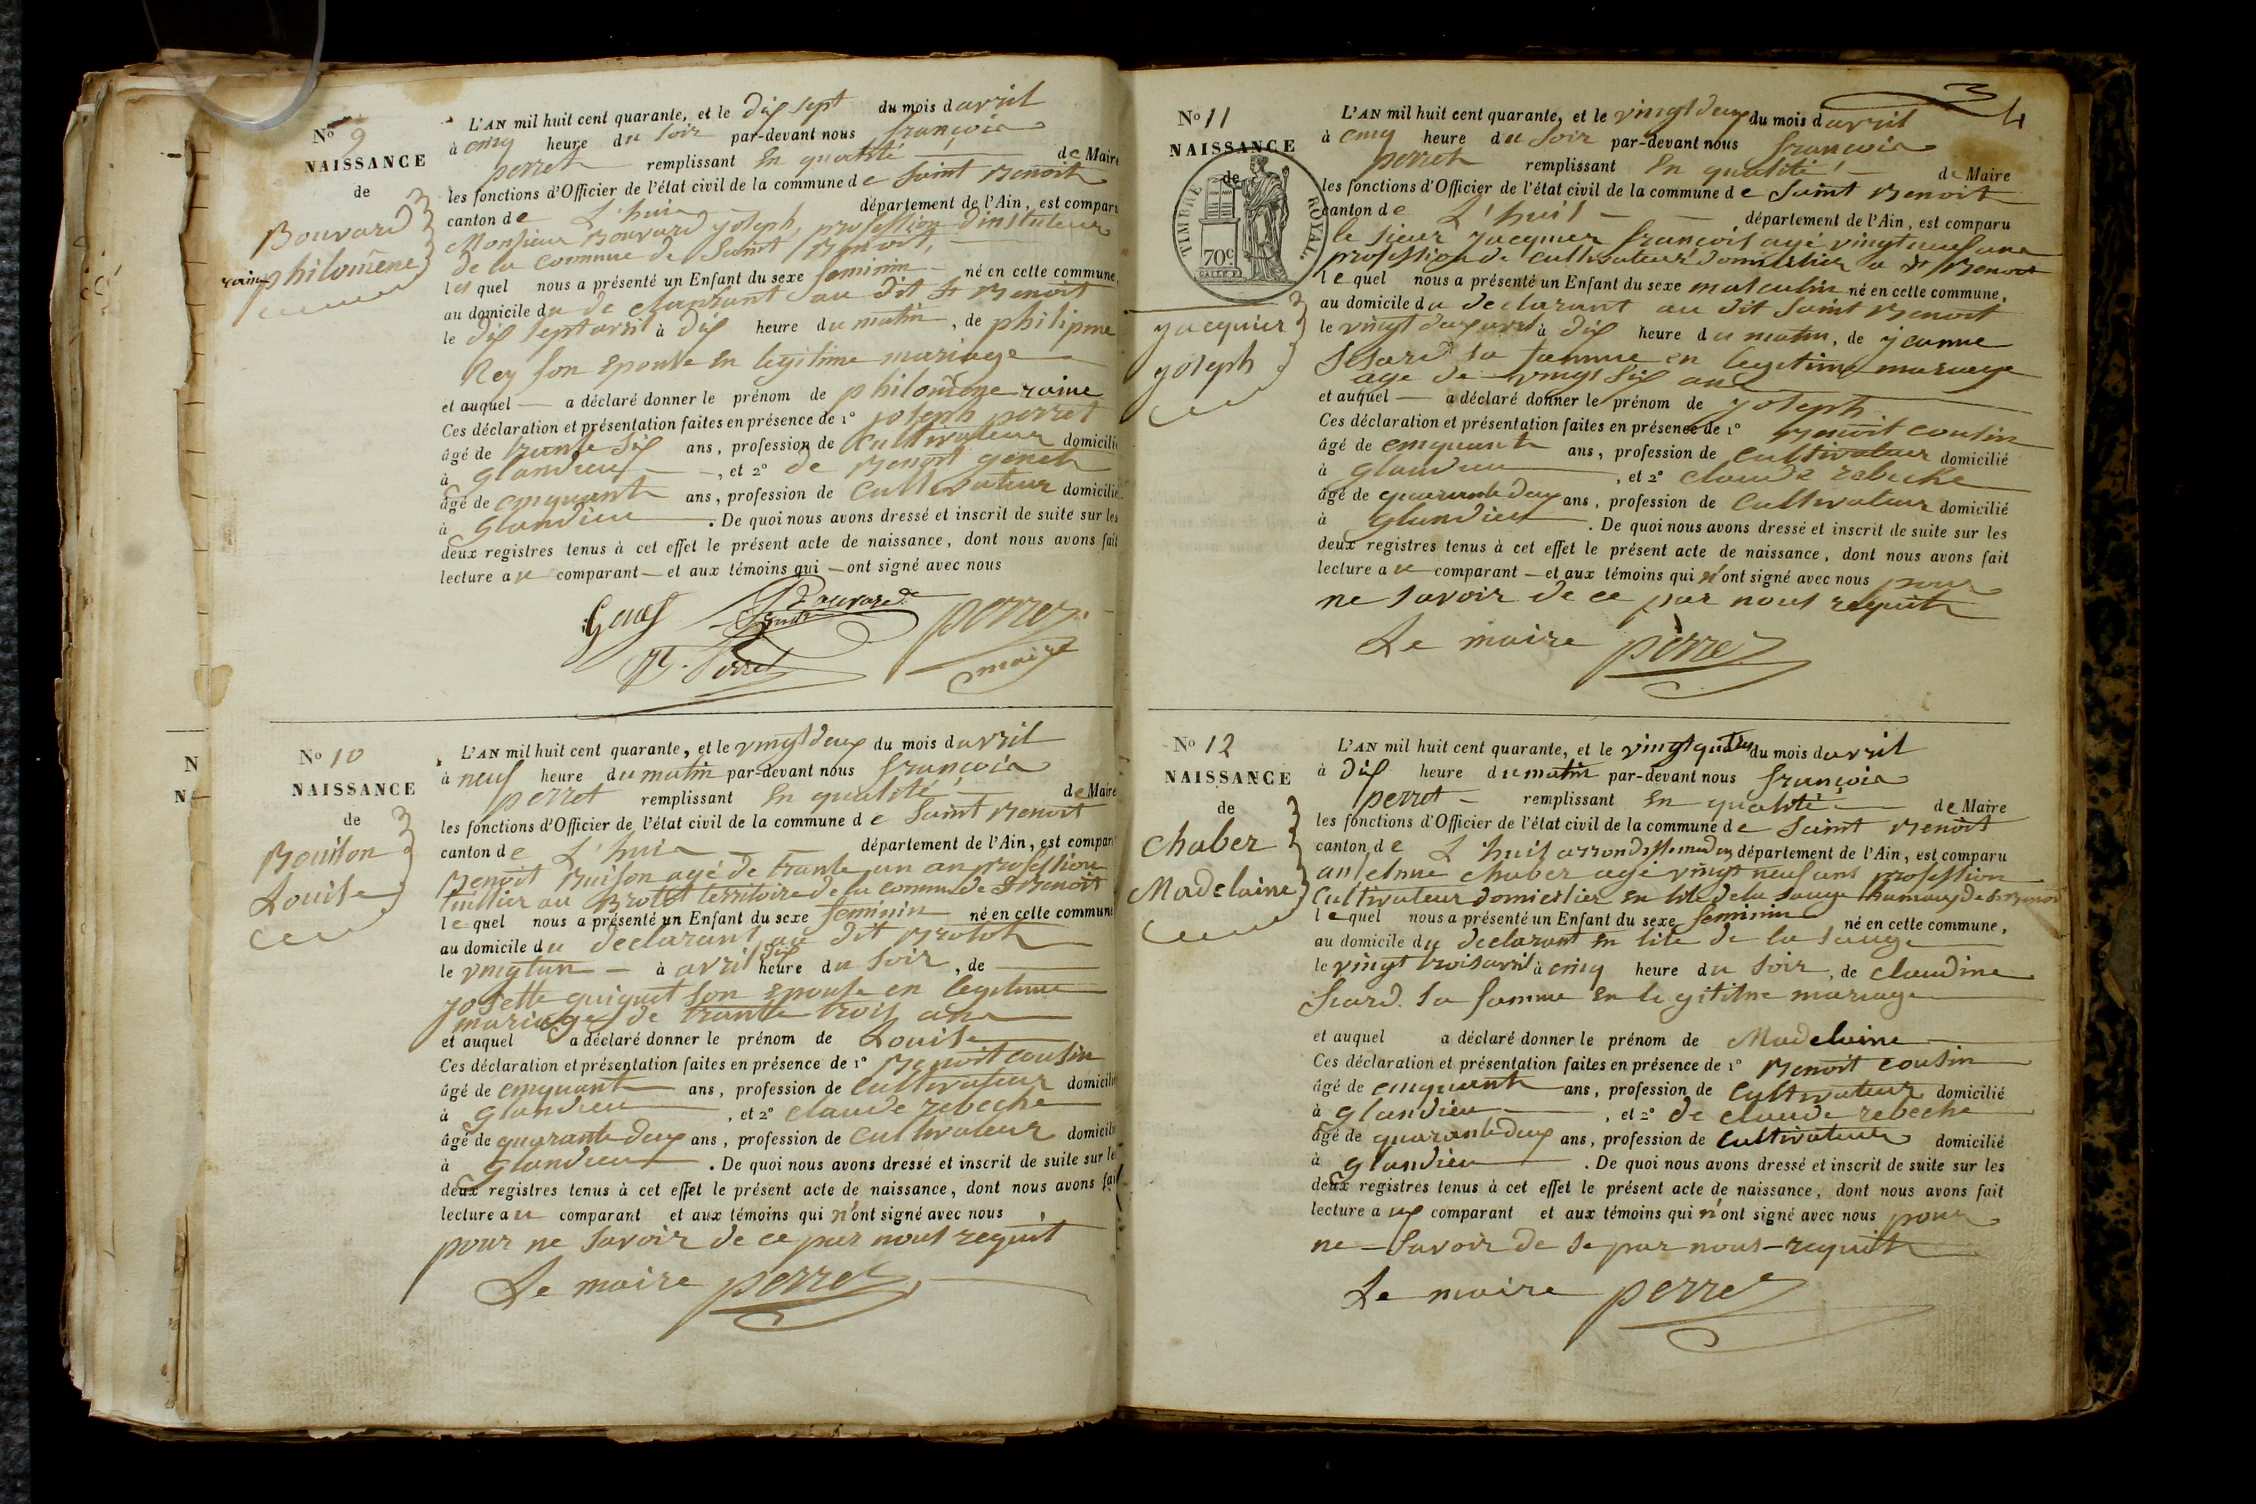 No 9
NAISSANCE
de
Bouvard
philomène
raine
L'AN mil huit cent quarante, et le dix sept du mois d avril
à cinq heure du soir par-devant nous françois
perret remplissant en qualité de Maire
les fonctions d'Officier de l'état civil de la commune de Saint Benoit
canton de L'huis département de l'Ain, est comparu
Monsieur Bouvard joseph, profession d'instituteur
de la commune de Saint Benoit,
lequel nous a présenté un Enfant du sexe feminin né en cette commune,
au domicile du declarant au dit St Benoit
le dix sept avril à dix heure du matin, de philipine
Rey son epouse en legitime mariage
et auquel a déclaré donner le prénom de philomène raine
Ces déclaration et présentation faites en présence de 1° joseph perret
âgé de trante six ans, profession de Cultivateur domicilié
à glandieu, et 2° de Benoit genet
âgé de cinquante ans, profession de Cultivateur domicilié
à glandieu. De quoi nous avons dressé et inscrit de suite sur les
deux registres tenus à cet effet le présent acte de naissance, dont nous avons fait
lecture au comparant et aux témoins qui ont signé avec nous
Bouvard
perret
maire
No 10
NAISSANCE
de
Bouison
Louise
L'AN mil huit cent quarante, et le vingt deux du mois d avril
à neuf heure du matin par-devant nous françois
perret remplissant en qualité de Maire
les fonctions d'Officier de l'état civil de la commune de Saint Benoit
canton de L'huis département de l'Ain, est comparu
Benoit Buison agé de trante un an profession
tuillier au Brotet territoire de la commune de St Benoit
lequel nous a présenté un Enfant du sexe feminin né en cette commune
au domicile du declarant au dit Brotet
le vingt un à avril dix heure du soir, de
josette guiguet son epouse en legitime
mariage de trante trois ans
et auquel a déclaré donner le prénom de Louise
Ces déclaration et présentation faites en présence de 1° Benoit cousin
âgé de cinquant ans, profession de Cultivateur domicilié
à glandieu, et 2° claude rebeche
âgé de quarante deux ans, profession de Cultivateur domicilié
à glandieu. De quoi nous avons dressé et inscrit de suite sur les
deux registres tenus à cet effet le présent acte de naissance, dont nous avons fait
lecture au comparant et aux témoins qui n'ont signé avec nous
pour ne savoir de ce par nous requit
Le maire perret
3
4
No 11
NAISSANCE
de
TIMBRE ROYAL.
70c
jacquier
joseph
L'AN mil huit cent quarante, et le vingt deux du mois d avril
à cinq heure du soir par-devant nous françois
perret remplissant en qualité de Maire
les fonctions d'Officier de l'état civil de la commune de Saint Benoit
canton de L'huis département de l'Ain, est comparu
le sieur jacquier françois agé vingt neuf ans
profession de Cultivateur domicilier a St Benoit
lequel nous a présenté un Enfant du sexe masculin né en cette commune,
au domicile du declarant au dit Saint Benoit
le vingt deux avril à dix heure du matin, de jeanne
sa famme en legitime mariage
age de vingt six ans
et auquel a déclaré donner le prénom de joseph
Ces déclaration et présentation faites en présence de 1° Benoit cousin
âgé de cinquante ans, profession de Cultivateur domicilié
à glandieu, et 2° claude rebeche
âgé de quarante deux ans, profession de Cultivateur domicilié
à glandieu. De quoi nous avons dressé et inscrit de suite sur les
deux registres tenus à cet effet le présent acte de naissance, dont nous avons fait
lecture au comparant et aux témoins qui n'ont signé avec nous pour
ne savoir de ce par nous requit
Le maire perret
No 12
NAISSANCE
de
chaber
Madelaine
L'AN mil huit cent quarante, et le vingt quatres du mois d avril
à dix heure du matin par-devant nous françois
perret remplissant en qualité de Maire
les fonctions d'Officier de l'état civil de la commune de Saint Benoit
canton de L'huis département de l'Ain, est comparu
antelme chaber agé vingt neuf ans profession
Cultivateur domicilier en lile de la sauge de St Benoit
lequel nous a présenté un Enfant du sexe feminin né en cette commune,
au domicile du declarant en lile de la sauge
le vingt trois avril à cinq heure du soir, de claudine
sa famme en legitilne mariage
et auquel a déclaré donner le prénom de Madelaine
Ces déclaration et présentation faites en présence de 1° Benoit cousin
âgé de cinquante ans, profession de Cultivateur domicilié
à glandieu, et 2° de claude rebeche
âgé de quarante deux ans, profession de cultivateur domicilié
à glandieu. De quoi nous avons dressé et inscrit de suite sur les
deux registres tenus à cet effet le présent acte de naissance, dont nous avons fait
lecture aux comparant et aux témoins qui n'ont signé avec nous pour
ne savoir de se par nous requit
Le maire perret